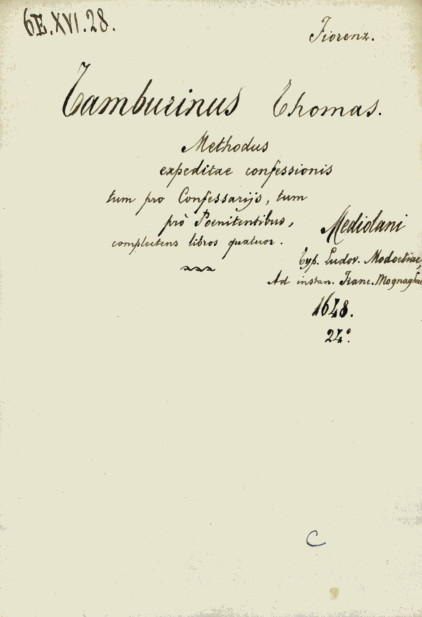 6E.XVI.28.
Fiorenz.
Tamburinus Thomas.
Methodus
expeditae confessionis
tum pro Confessarijs, tum
pro Poenitentibus,
complectens libros quatuor.
Mediolani
Typ. Ludov. Modoetiae,
Ad instan. Franc. Mognaghae
1648.
24°.
C